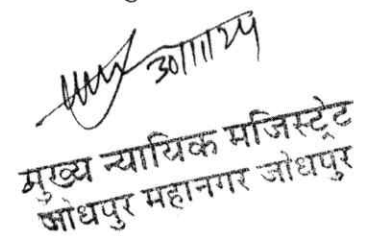 30/11/24
मुख्य न्यायिक मजिस्ट्रेट
जोधपुर महानगर जोधपुर